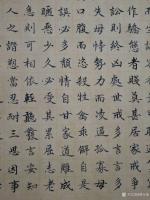 作驕態者賤莫甚居家戒爭
訟訟則終凶處世戒多言言多
失毋恃勢力而凌逼孤寡毋
口腹而恣殺牲禽乖僻自是
誤必多頹惰自甘家道難成
惡少久必受其累屈志老
急則可相依輕聽發言安知
人之譖愬當忍耐三思因事